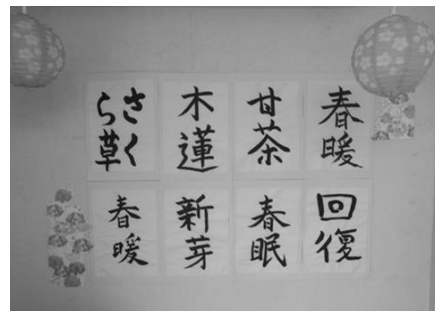 春暖
甘茶
木蓮
さくら草
回復
春眠
新芽
春暖